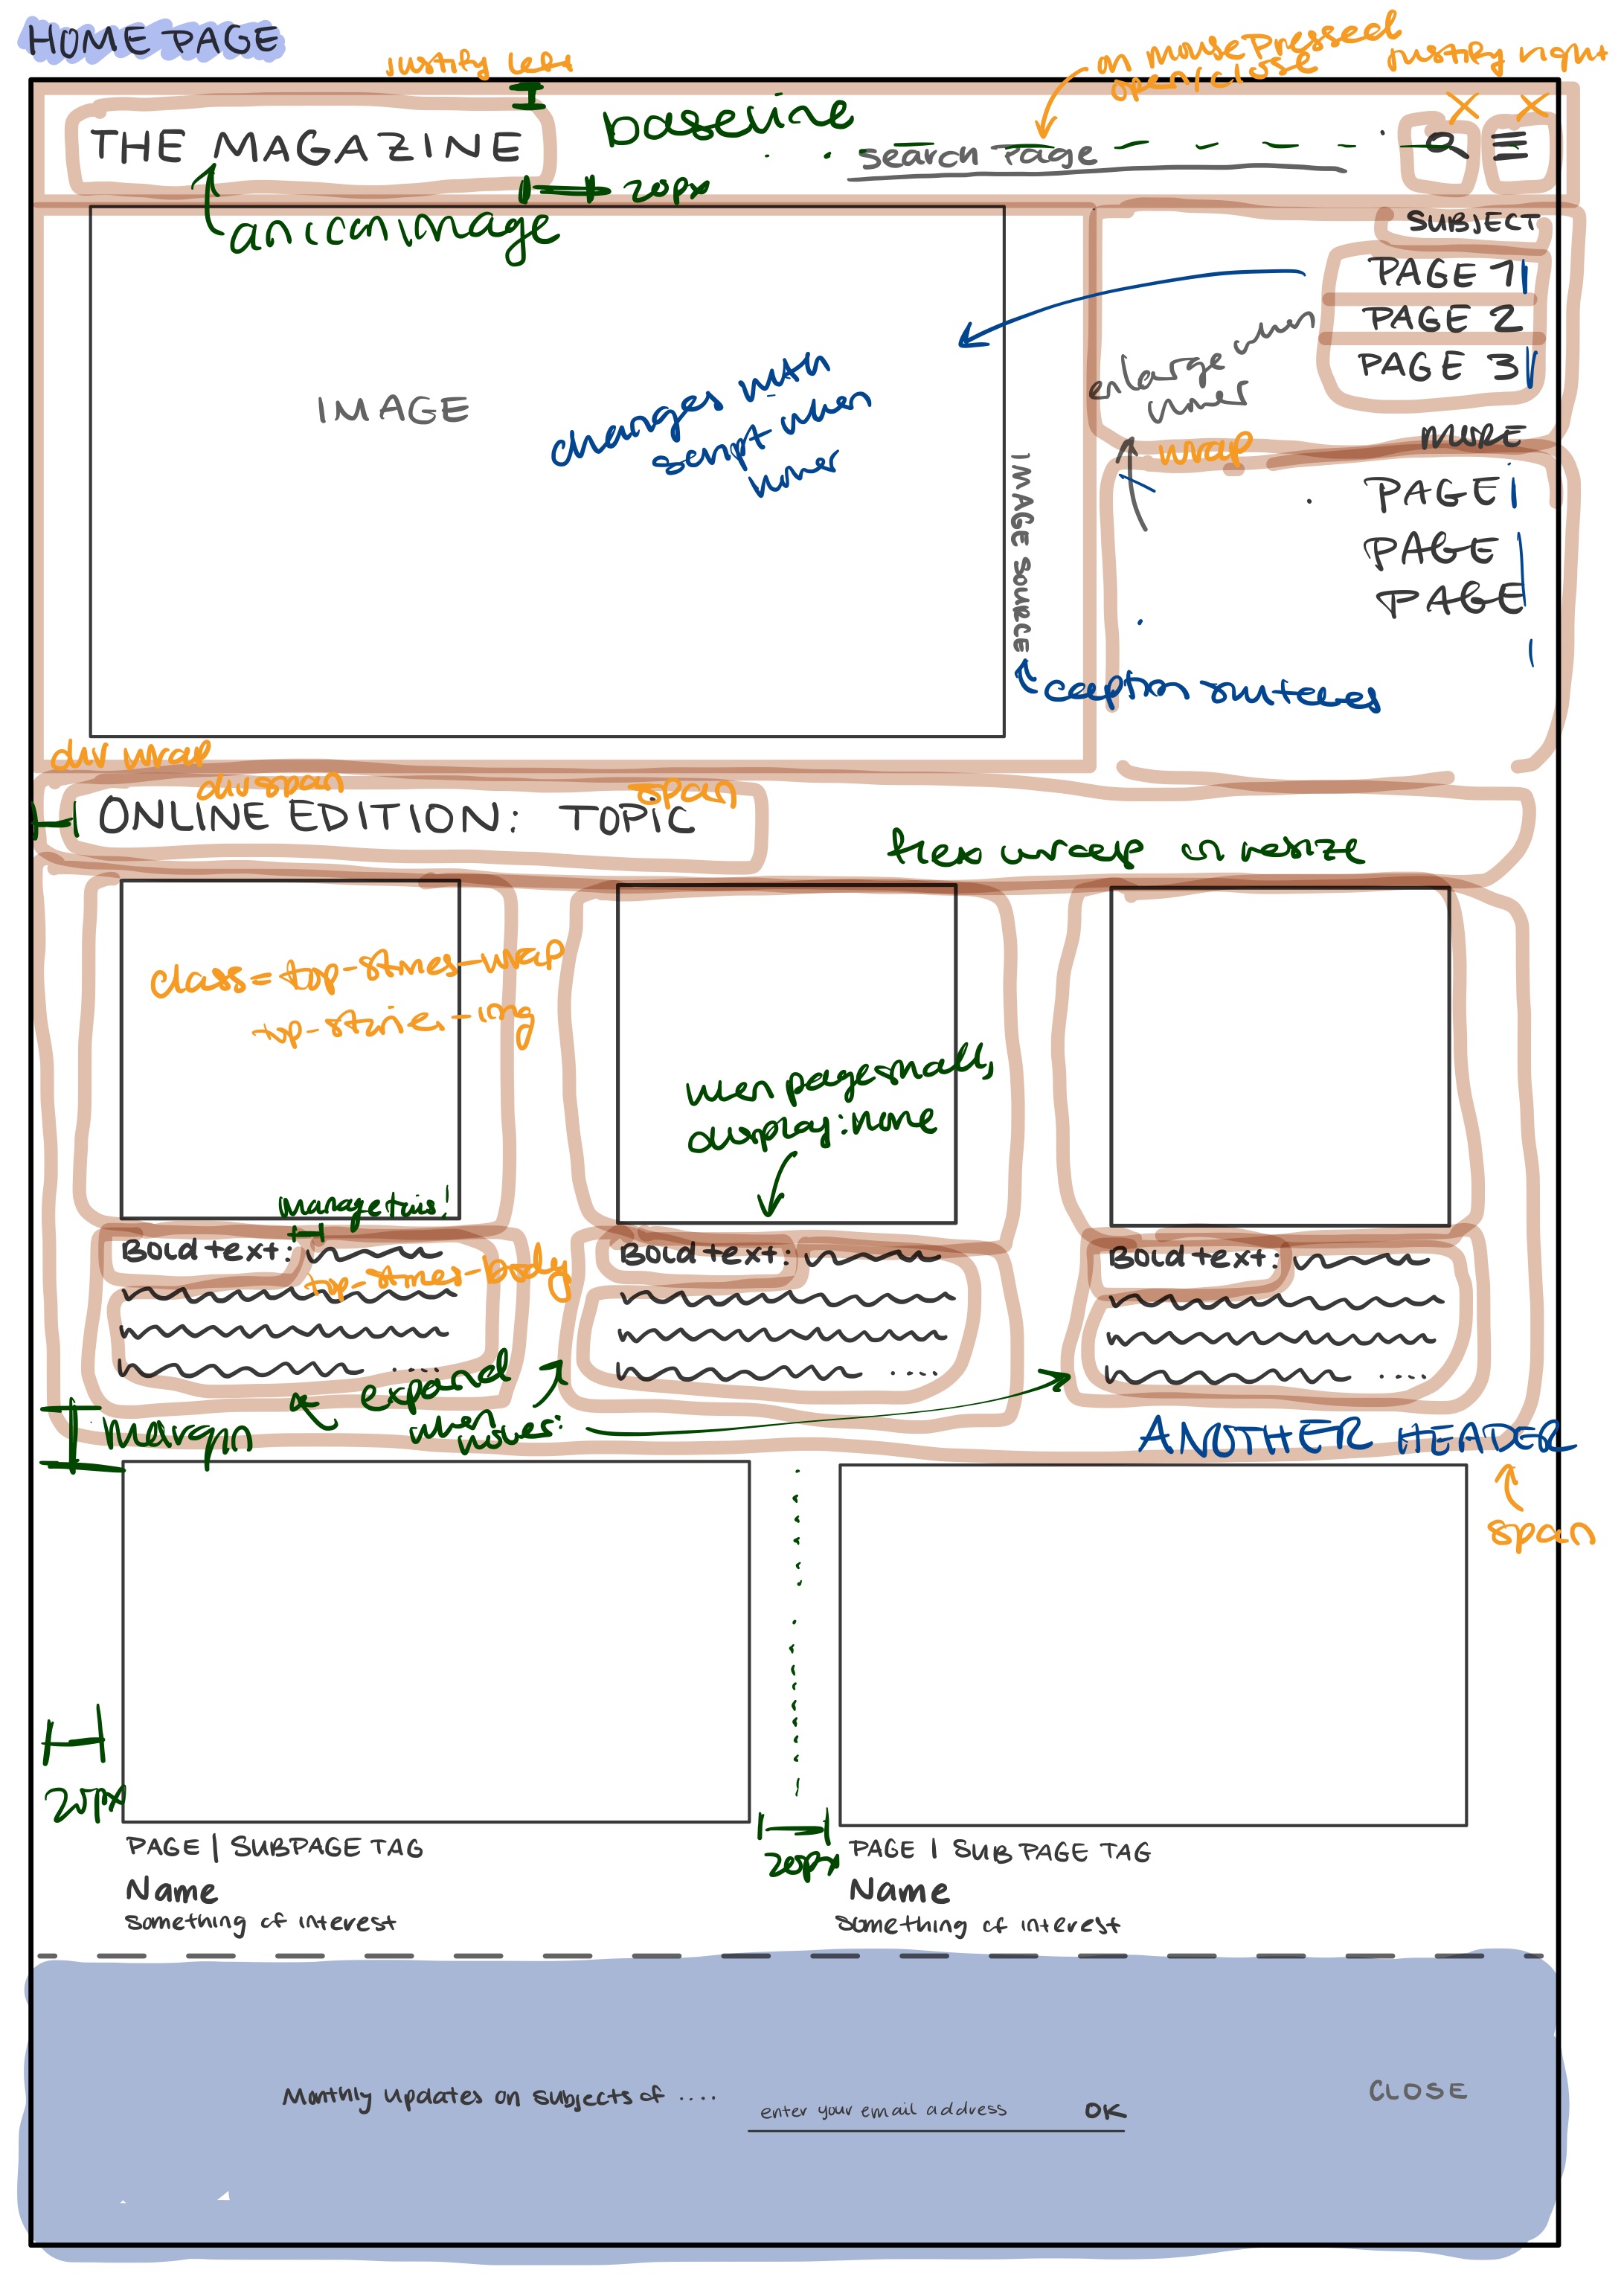 HOME PAGE
justify left
on mousePressed
open/close
justify right
THE MAGAZINE
baseline
search page
20px
an icon image
SUBJECT
PAGE 1
PAGE 2
PAGE 3
enlarge when
hover
IMAGE
changes with
script when
hover
MORE
wrap
PAGE
PAGE
PAGE
IMAGE SOURCE
caption switches
div wrap
div span
span
ONLINE EDITION: TOPIC
flex wrap on resize
class=top-stories-wrap
top-stories-img
when page small,
display:none
manage this!
Bold text:
Bold text:
Bold text:
top-stories-body
expand
when
hover:
margin
ANOTHER HEADER
span
20px
20px
PAGE | SUBPAGE TAG
PAGE | SUBPAGE TAG
Name
Name
something of interest
something of interest
Monthly updates on subjects of ....
enter your email address
OK
CLOSE